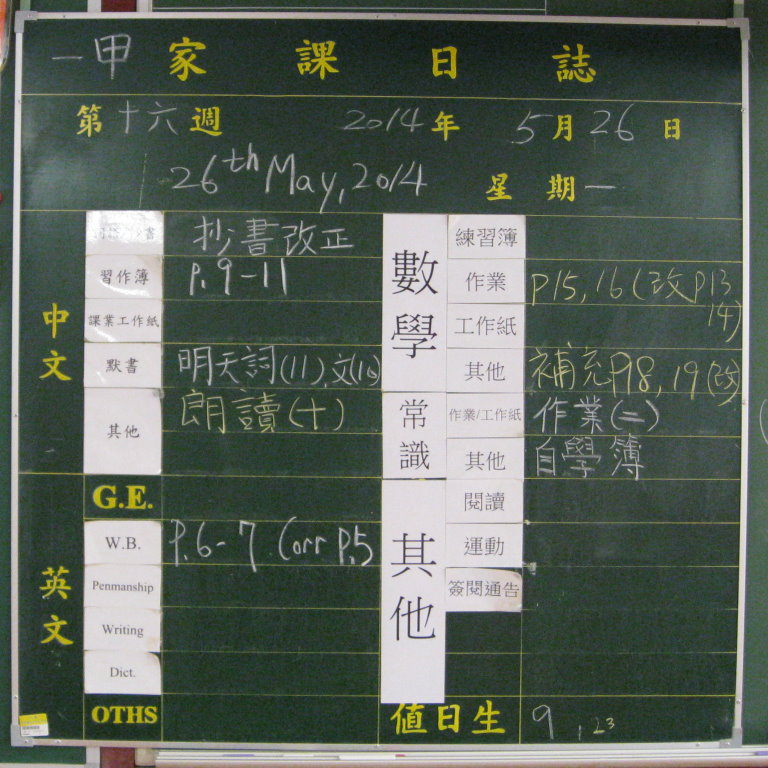 一甲家課日誌
第十六週 2014年 5月26日
26th May, 2014 星期一
中文
書 抄書改正
習作簿 P.9-11
課業工作紙
默書 明天詞(11).文(10)
其他 朗讀(十)
英文
G.E.
W.B. P.6-7 Corr P.5
Penmanship
Writing
Dict.
OTHS
數學
練習簿
作業 P15, 16 (改P13
14)
工作紙
其他 補充P18, 19(改)
常識
作業/工作紙 作業(二)
其他 自學簿
其他
閱讀
運動
簽閱通告
值日生 9, 23